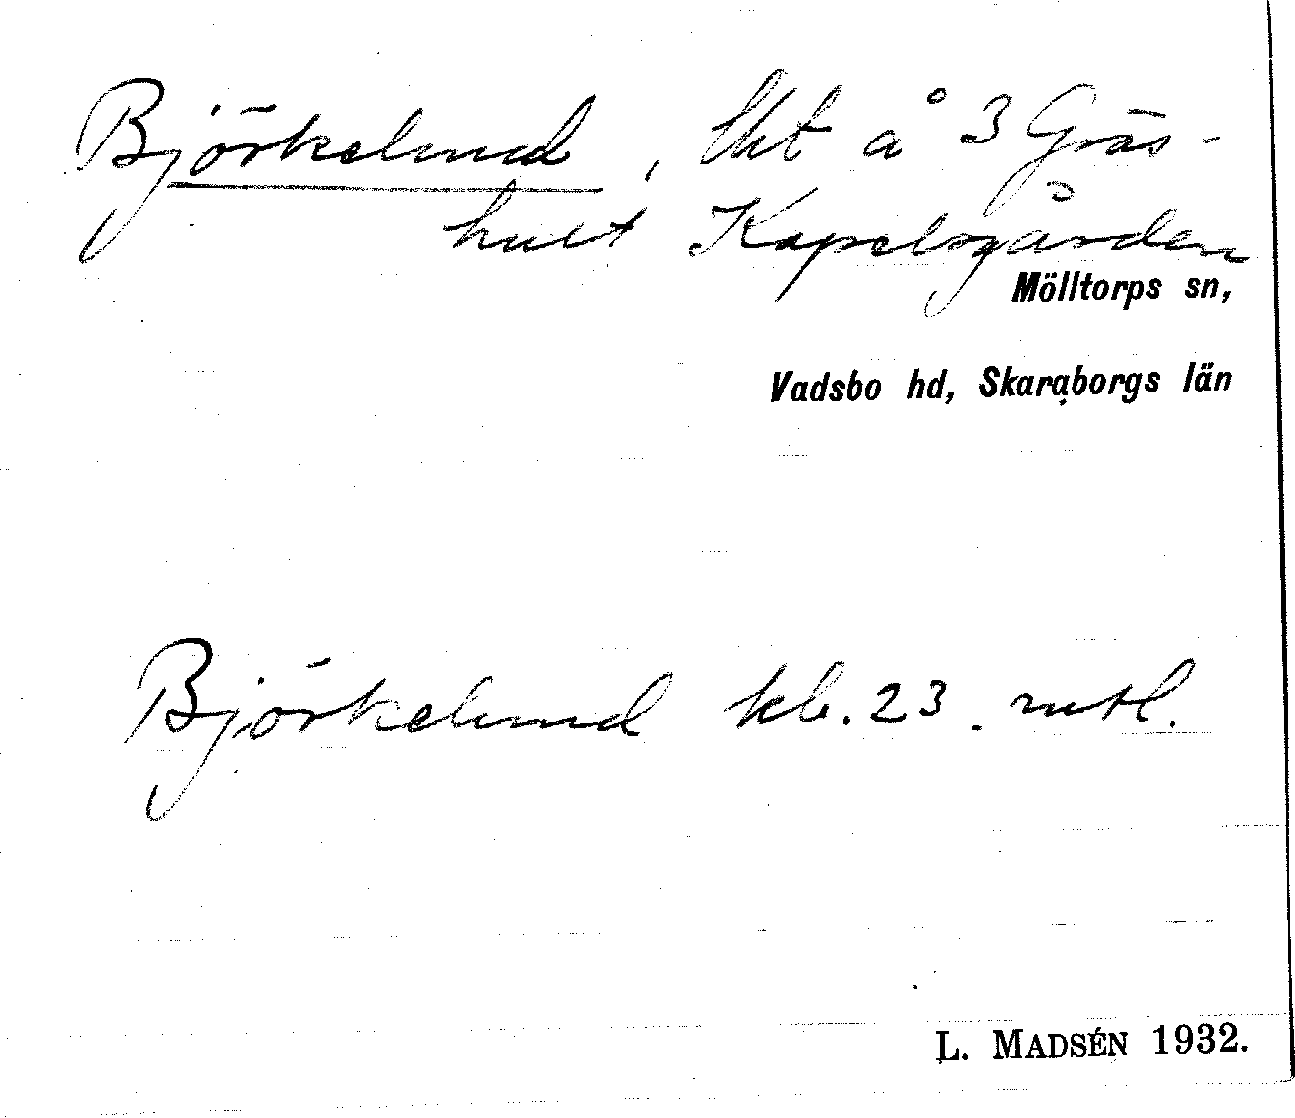 Björkelund, lht å 3 Gräs-
hult Kapelsgården
Mölltorps sn,
Vadsbo hd, Skaraborgs län
Björkelund kb. 23. mtl.
L. MADSÉN 1932.